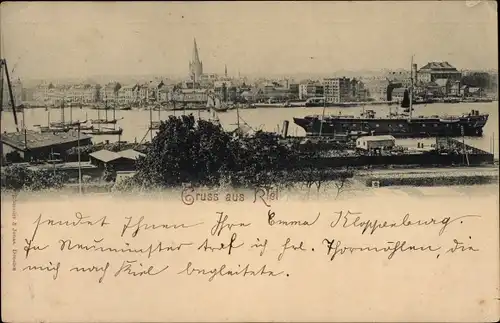 Gruss aus Kiel
sendet Ihnen Ihre Emma Kloppenburg.
In Neumünster traf ich Frl. Thormählen, die
mich nach Kiel begleitete.